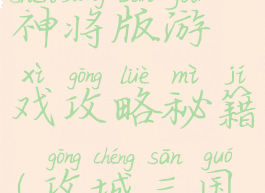 神将版游
xì gōng lüè mì jí
戏攻略秘籍
gōng chéng sān guó
(攻城三国